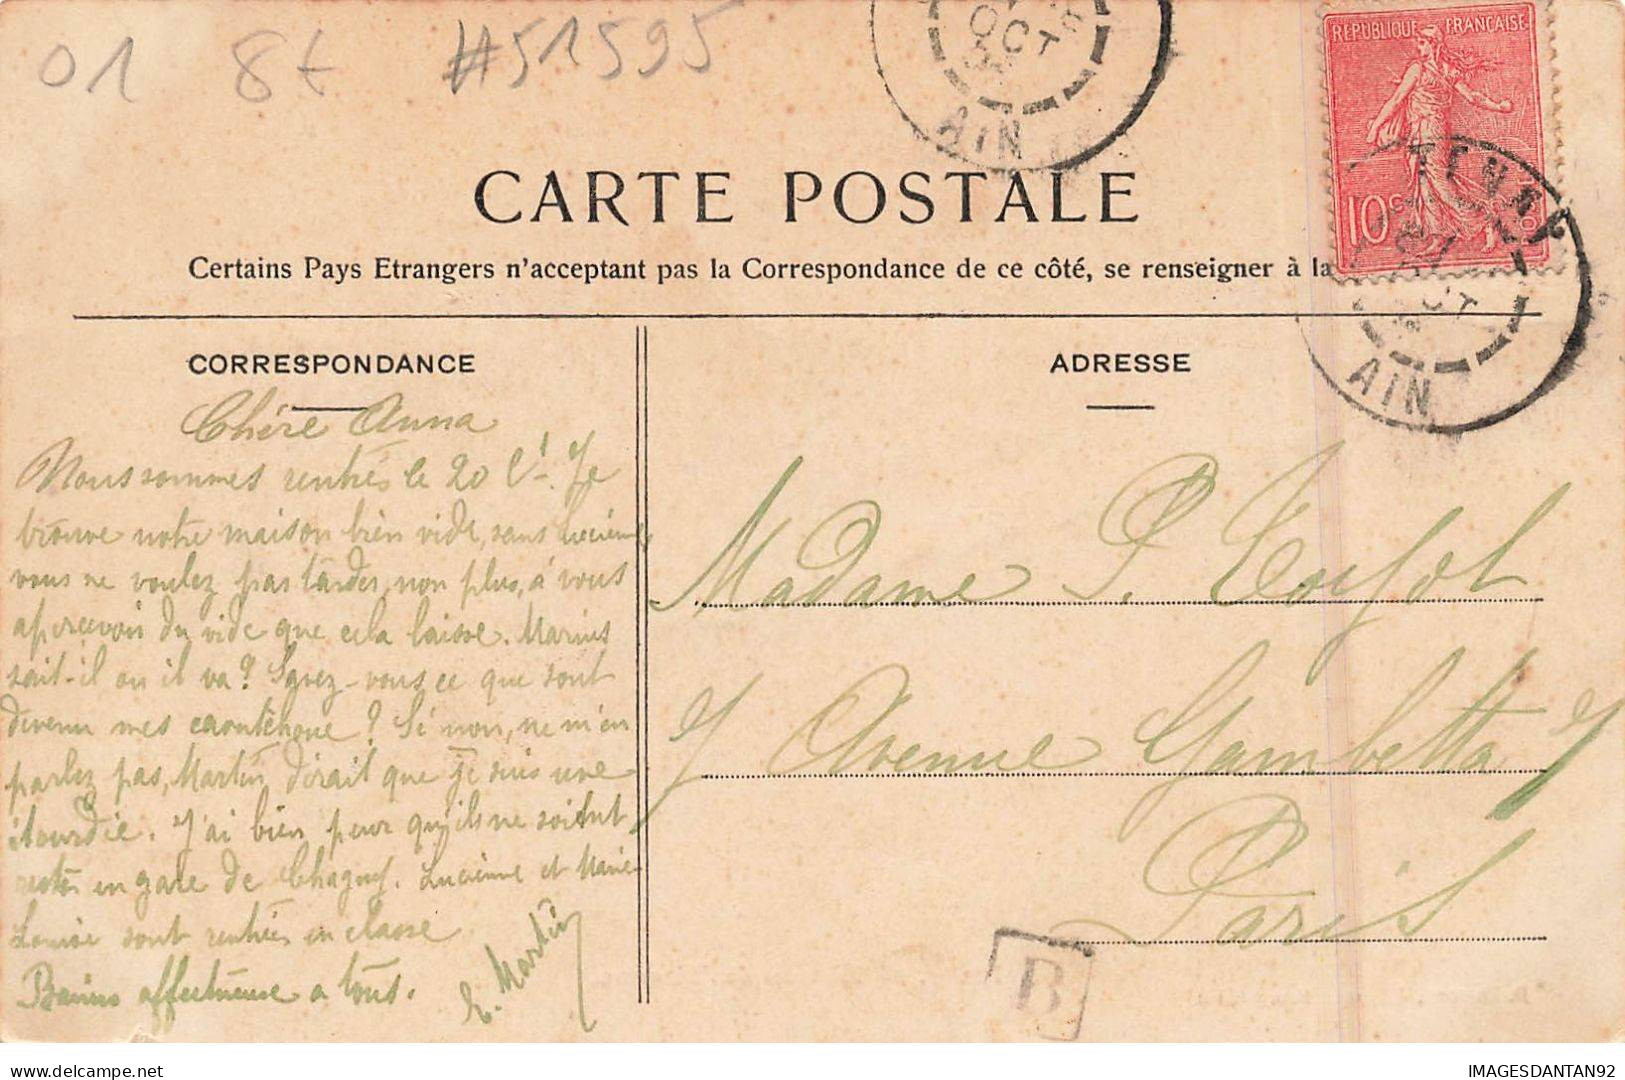 01 8t #51595
OCT
AIN
REPUBLIQUE FRANCAISE
10 c
TENAY
OCT
AIN
CARTE POSTALE
Certains Pays Etrangers n'acceptant pas la Correspondance de ce côté, se renseigner à la
CORRESPONDANCE
Chère Anna
Nous sommes rentrés le 20 Ct. Je
trouve notre maison bien vide, sans Lucienne,
vous ne voulez pas tarder, non plus, à vous
apercevoir du vide que cela laisse. Marius
sait-il ou il va? Savez-vous ce que sont
devenu mes caoutchouc? Si non, ne m'en
parlez pas, Martin dirait que je suis une
étourdie. J'ai bien peur qu'ils ne soient
restés en gare de Chagny. Lucienne et Marie
Louise sont rentrées en classe
affectueuse a tous.
E. Martin
ADRESSE
Madame P.
7 Avenue Gambetta 7
Paris
B
IMAGESDANTAN92